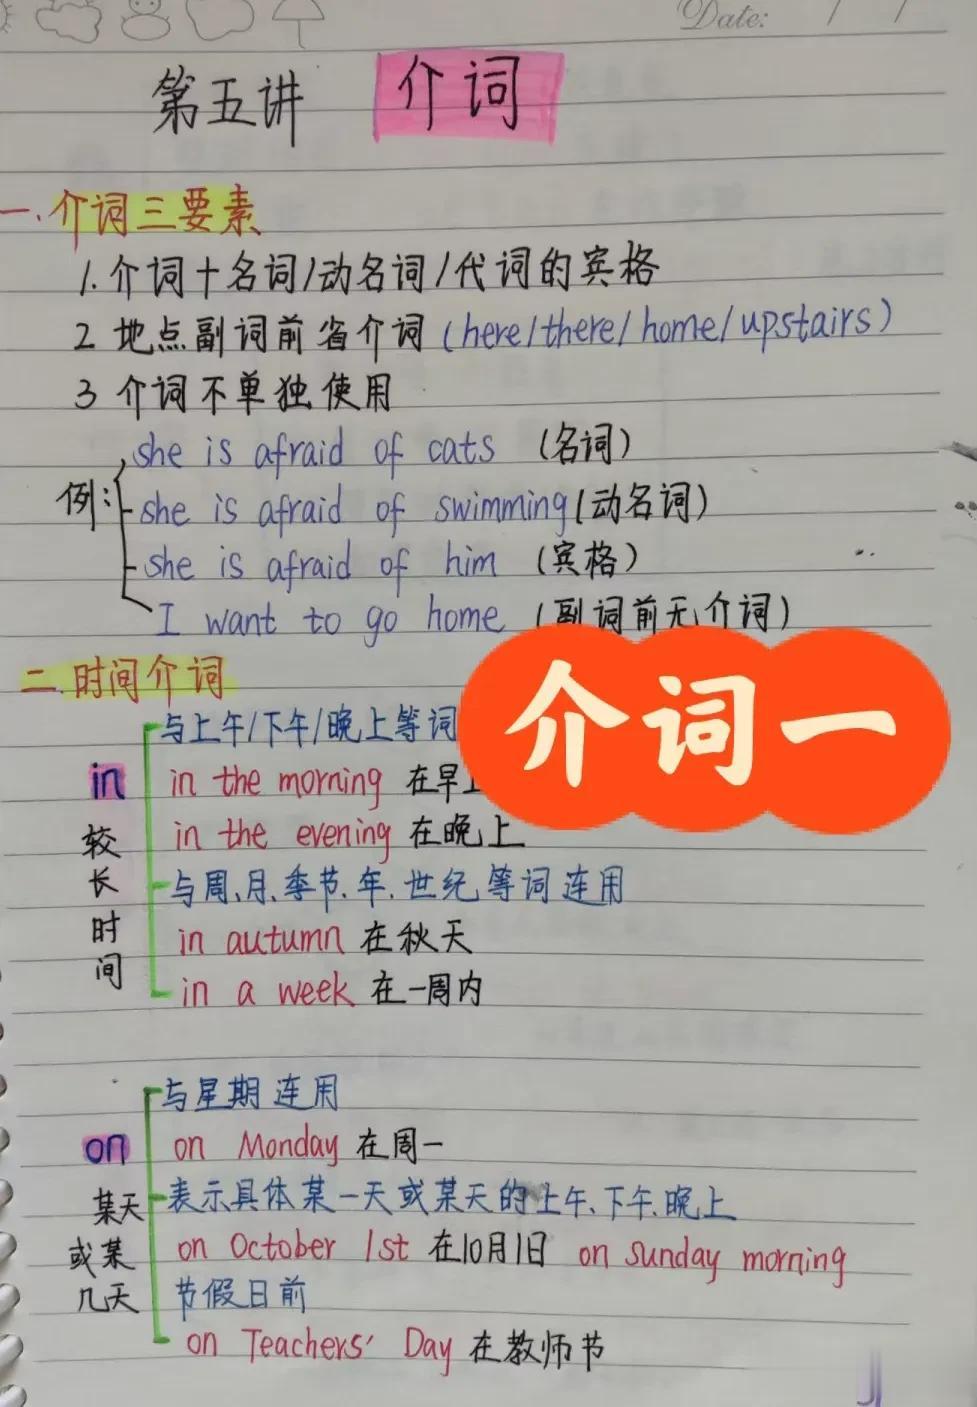 Date: / /
第五讲 介词
一.介词三要素
1.介词+名词/动名词/代词的宾格
2 地点副词前省介词(here/there/home/upstairs)
3 介词不单独使用
例:
she is afraid of cats (名词)
she is afraid of swimming(动名词)
she is afraid of him (宾格)
I want to go home (副词前无介词)
二.时间介词
介词一
in
较长时间
与上午/下午/晚上等词
in the morning 在早上
in the evening 在晚上
与周、月、季节、年、世纪等词连用
in autumn 在秋天
in a week 在一周内
on
某天
或某
几天
与星期连用
on Monday 在周一
表示具体某一天或某天的上午、下午、晚上
on October 1st 在10月1日 on sunday morning
节假日前
on Teachers' Day 在教师节